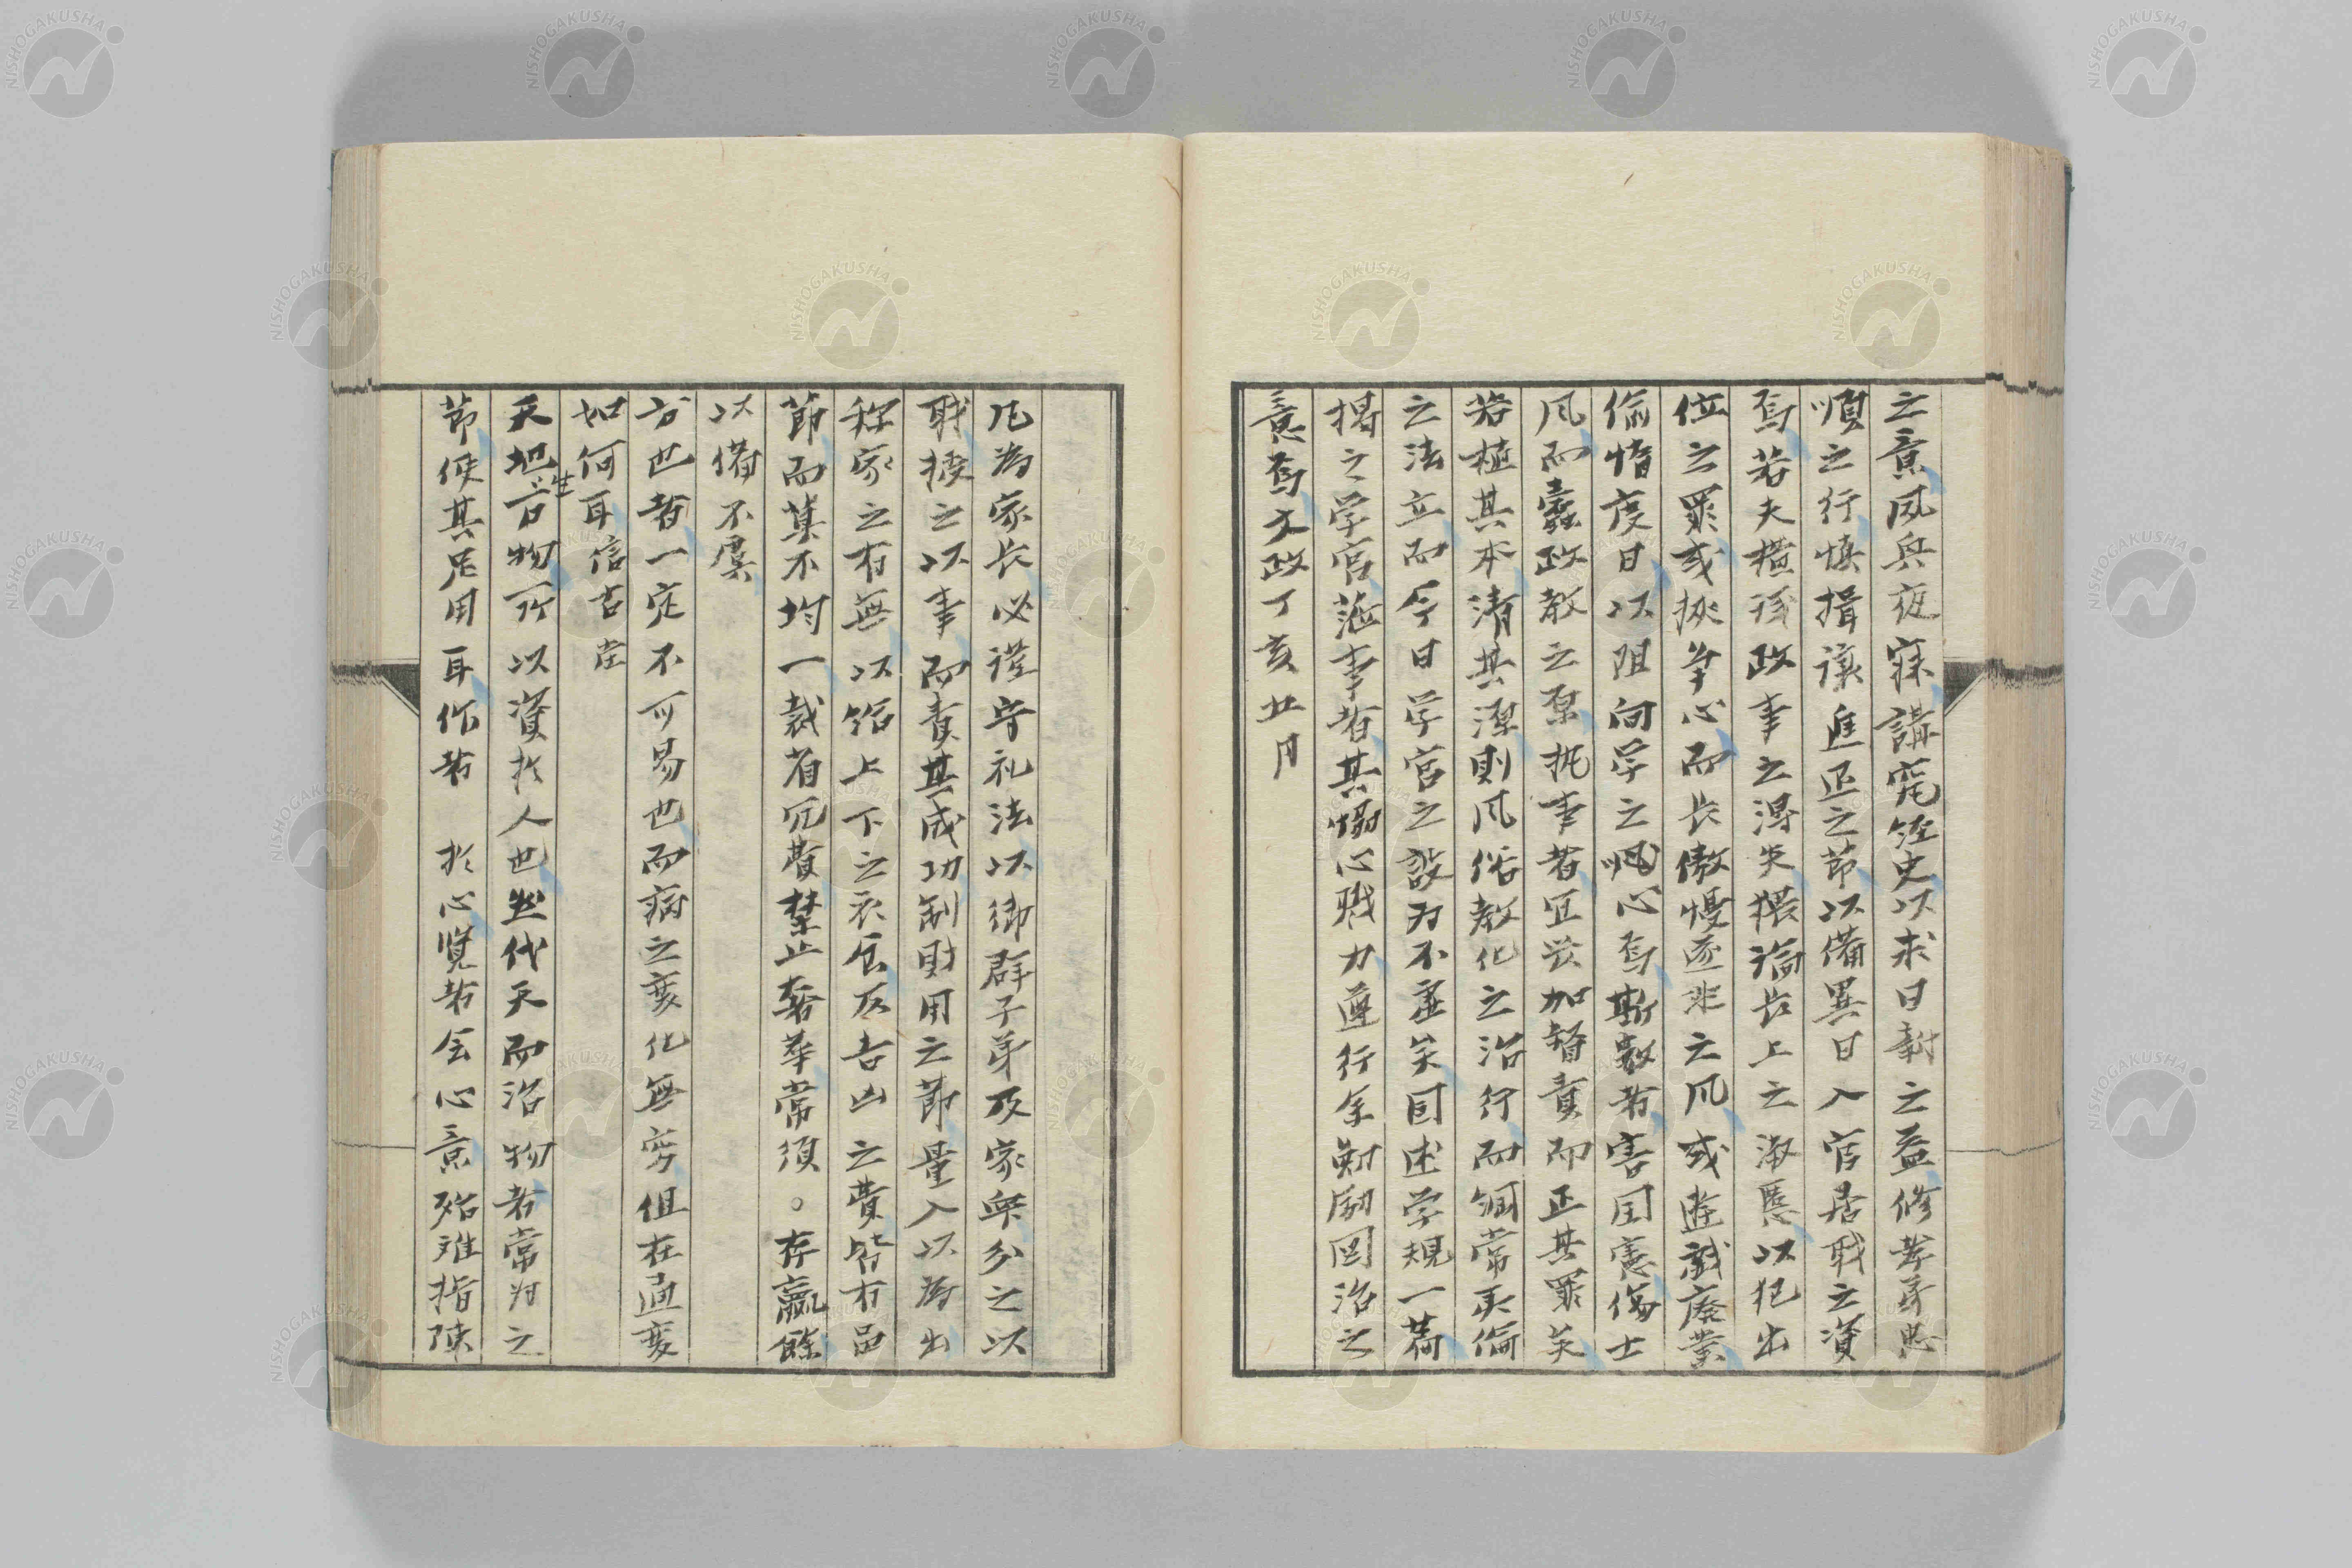 之意夙興夜寐講究經史以求日新之益修孝弟忠
順之行慎揖讓進退之節以備異日入官居職之資
焉若夫橫議政事之得失猥論長上之淑慝以犯出
位之罪或挾争心而長傲慢遂非之風或遊戯廃業
偷惰度日以阻向学之人心焉斯数者害国憲傷士
風而蠹政教之原執事者宜嚴加督責而正其罪矣
若植其本清其源則風俗教化之治行而綱常彝倫
之法立而今日学官之設为不虚矣因述学規一篇
揭之学官莅事者其協心戮力遵行余勸励図治之
意焉文政丁亥廿月
凡為家長必謹守礼法以御群子弟及家衆分之以
職授之以事而責其成功制財用之節量入以為出
稱家之有無以給上下之衣食及吉凶之費皆有品
節而莫不均一裁省冗費禁止奢華常須。存贏餘
以備不虞
方也者一定不可易也而病之変化無窮但在通変
如何耳信古庄
天地生万物所以資於人也然代天而治物者常为之
節使其足用耳作者 於心覧者会心意殆难指陳